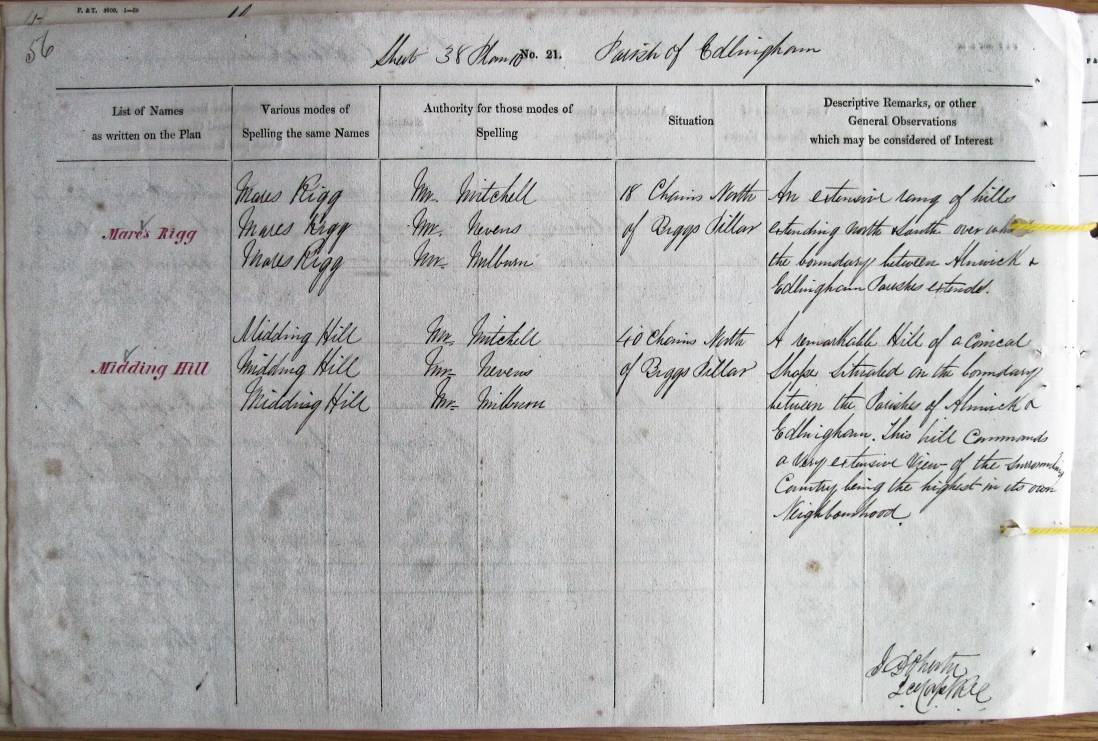 56
Sheet 38 Plan 10 No. 21. Parish of Edlingham
List of Names
as written on the Plan
Various modes of
Spelling the same Names
Authority for those modes of
Spelling
Situation
Descriptive Remarks, or other
General Observations
which may be considered of Interest
Mares Rigg
Mares Rigg
Mares Rigg
Mares Rigg
Mr. Mitchell
Mr. Nevens
Mr. Milburn
18 Chains North
of Biggs Pillar
An extensive rang of hills
extending North & South over which
the boundary between Alnwick &
Edlingham Parishes extends.
Midding Hill
Midding Hill
Midding Hill
Midding Hill
Mr. Mitchell
Mr. Nevens
Mr. Milburn
40 Chains North
of Biggs Pillar
A remarkable Hill of a Conical
Shape Situated on the boundary
between the Parishes of Alnwick &
Edlingham. This hill Commands
a very extensive View of the Surrounding
Country being the highest in its own
Neighbourhood.